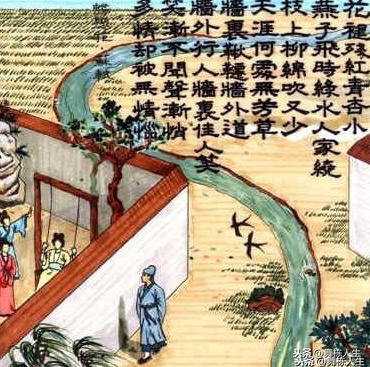 花褪殘紅青杏小
燕子飛時綠水人家繞
枝上柳綿吹又少
天涯何處無芳草
牆裏鞦韆牆外道
牆外行人牆裏佳人笑
笑漸不聞聲漸悄
多情却被無情惱
蝶戀花 蘇軾